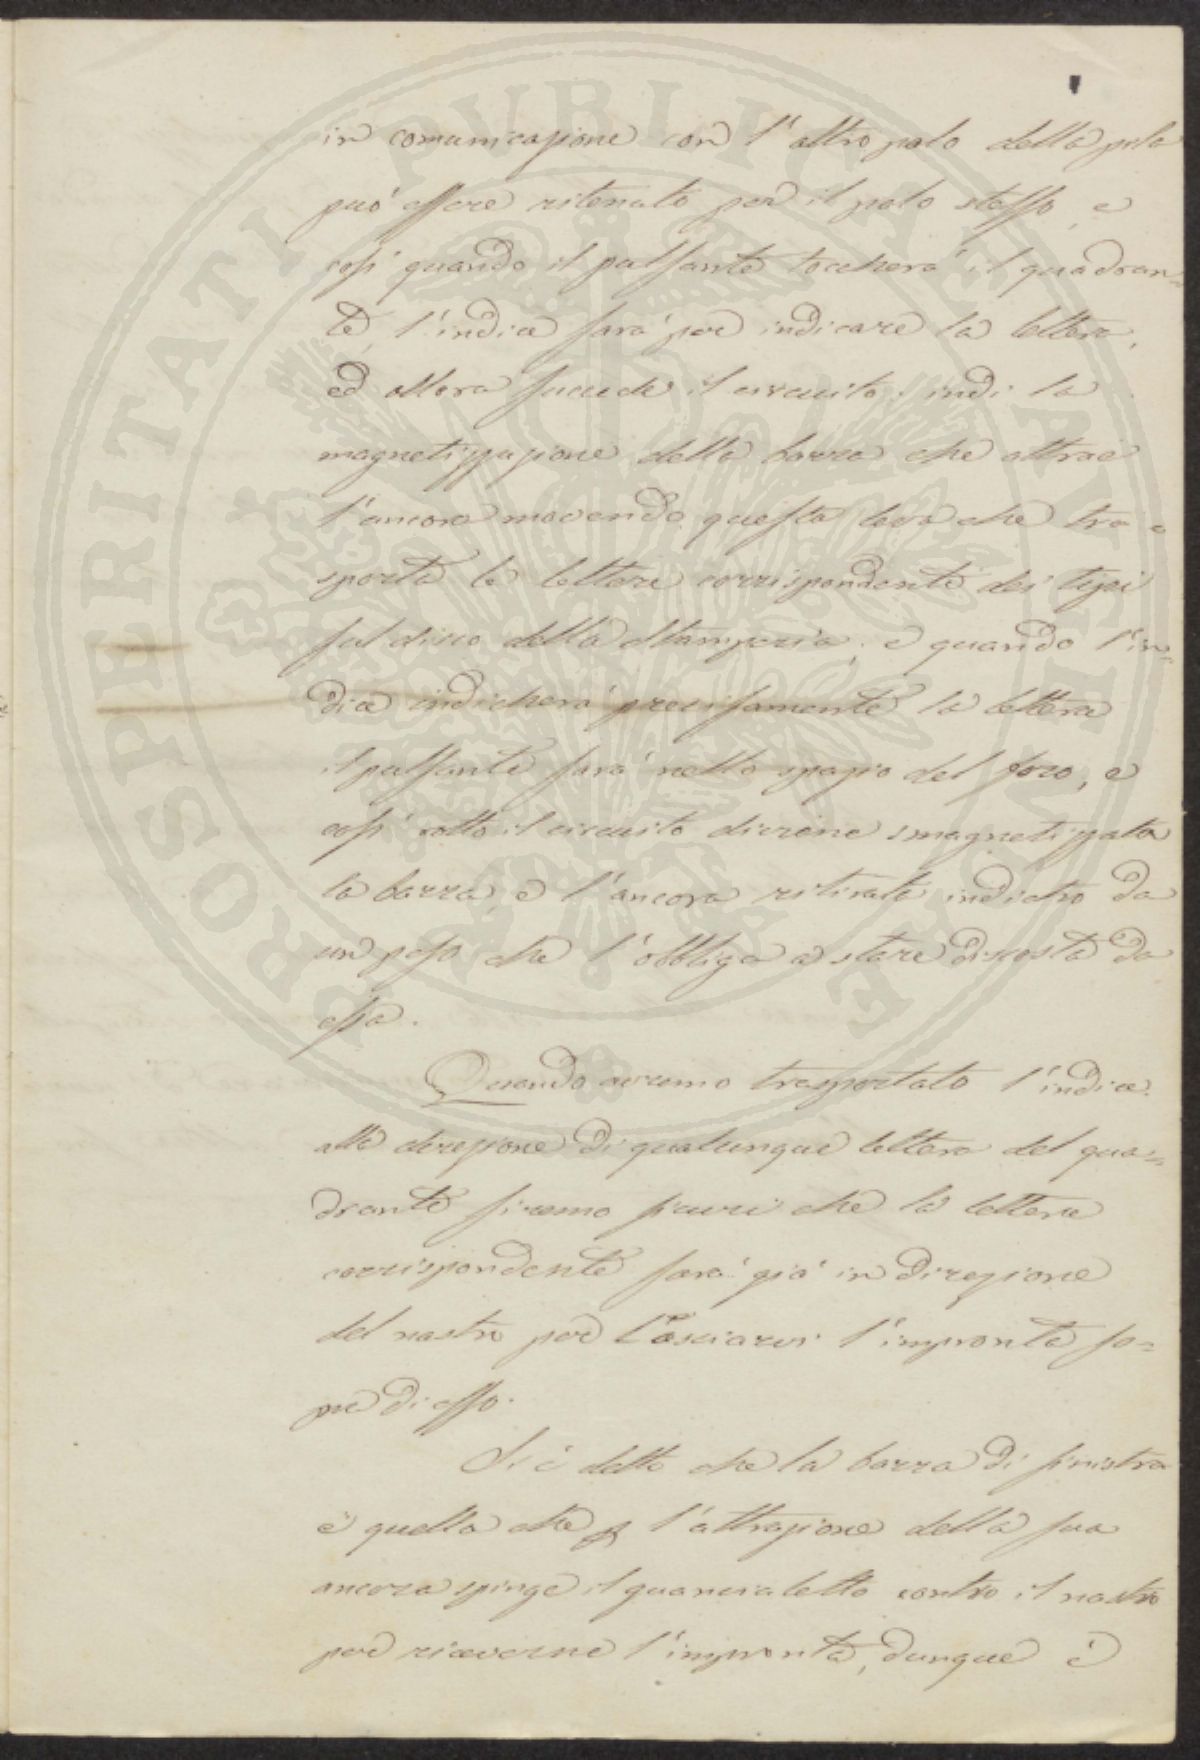 in comunicazione con l'altro polo della pila
può essere ritenuto per il polo stesso, e
così quando il pulsante toccherà il quadran=
te l'indice sarà per indicare la lettera,
ed allora succede il circuito, indi la
magnetizzazione della barra che attrae
l'ancora movendo questa leva che tra=
sporta le lettere corrispondente dei tipi
sul disco della stamperia, e quando l'in=
dice indicherà precisamente la lettera
il pulsante sarà nello spazio del foro, e
così rotto il circuito diviene smagnetizzata
la barra, e l'ancora ritirata indietro da
un peso che l'obbliga a stare discosta da
essa.
Quando avremo trasportato l'indice
alla direzione di qualunque lettera del qua=
drante siremo sicuri che la lettera
corrispondente sarà già in direzione
del nastro per lasciarvi l'impronta so=
pra di esso.
Si è detto che la barra di sinistra
è quella che p l'attrazione della sua
ancora spinge il guancialetto contro il nastro
per riceverne l'impronta, dunque è
PROSPERITATI PUBLICAE AUGENDAE